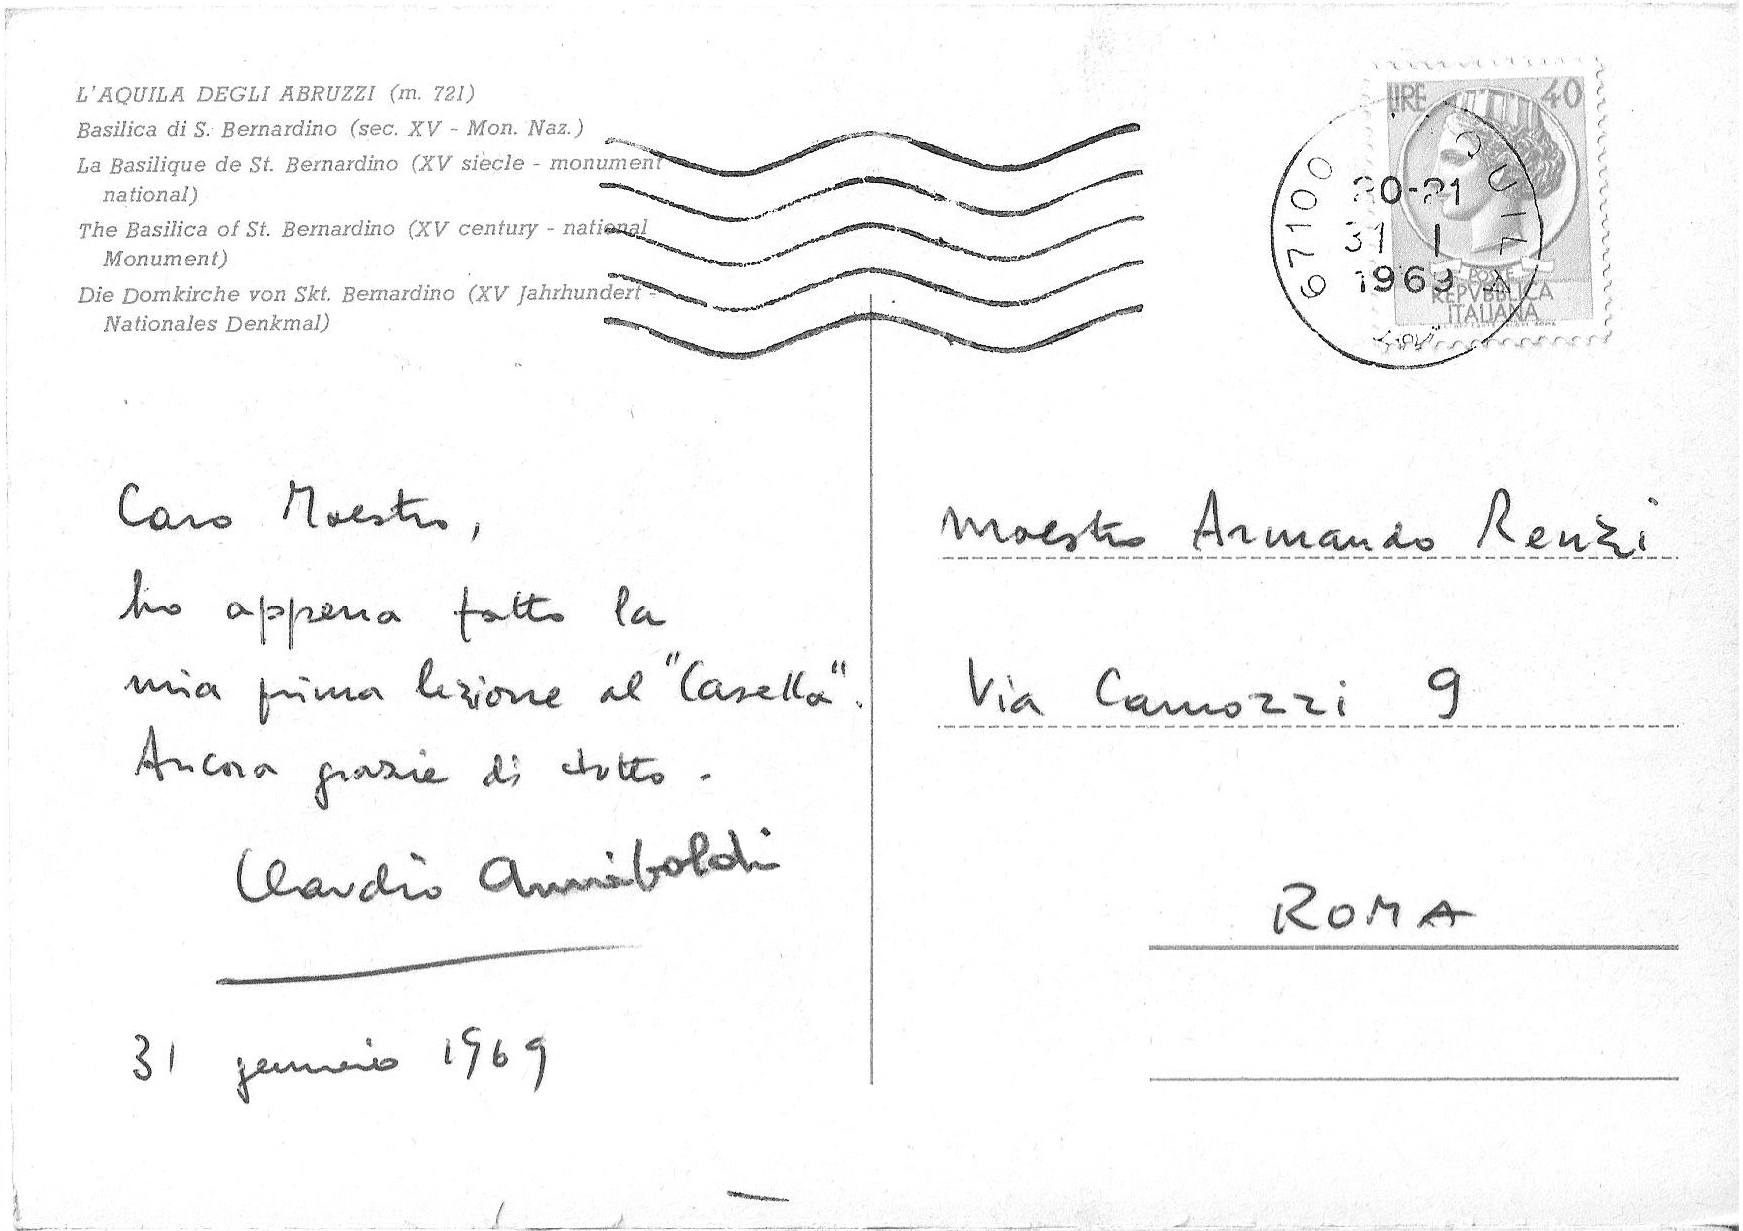 L'AQUILA DEGLI ABRUZZI (m. 721)
Basilica di S. Bernardino (sec. XV - Mon. Naz.)
La Basilique de St. Bernardino (XV siècle - monument
national)
The Basilica of St. Bernardino (XV century - national
Monument)
Die Domkirche von Skt. Bernardino (XV Jahrhundert -
Nationales Denkmal)
Caro Maestro,
ho appena fatto la
mia prima lezione al "Casella".
Ancora grazie di tutto.
Claudio Annibaldi
31 gennaio 1969
LIRE 40
POSTE
REPVBBLICA
ITALIANA
67100 L'AQUILA
20-21
31 1
1969
Maestro Armando Renzi
Via Camozzi 9
ROMA